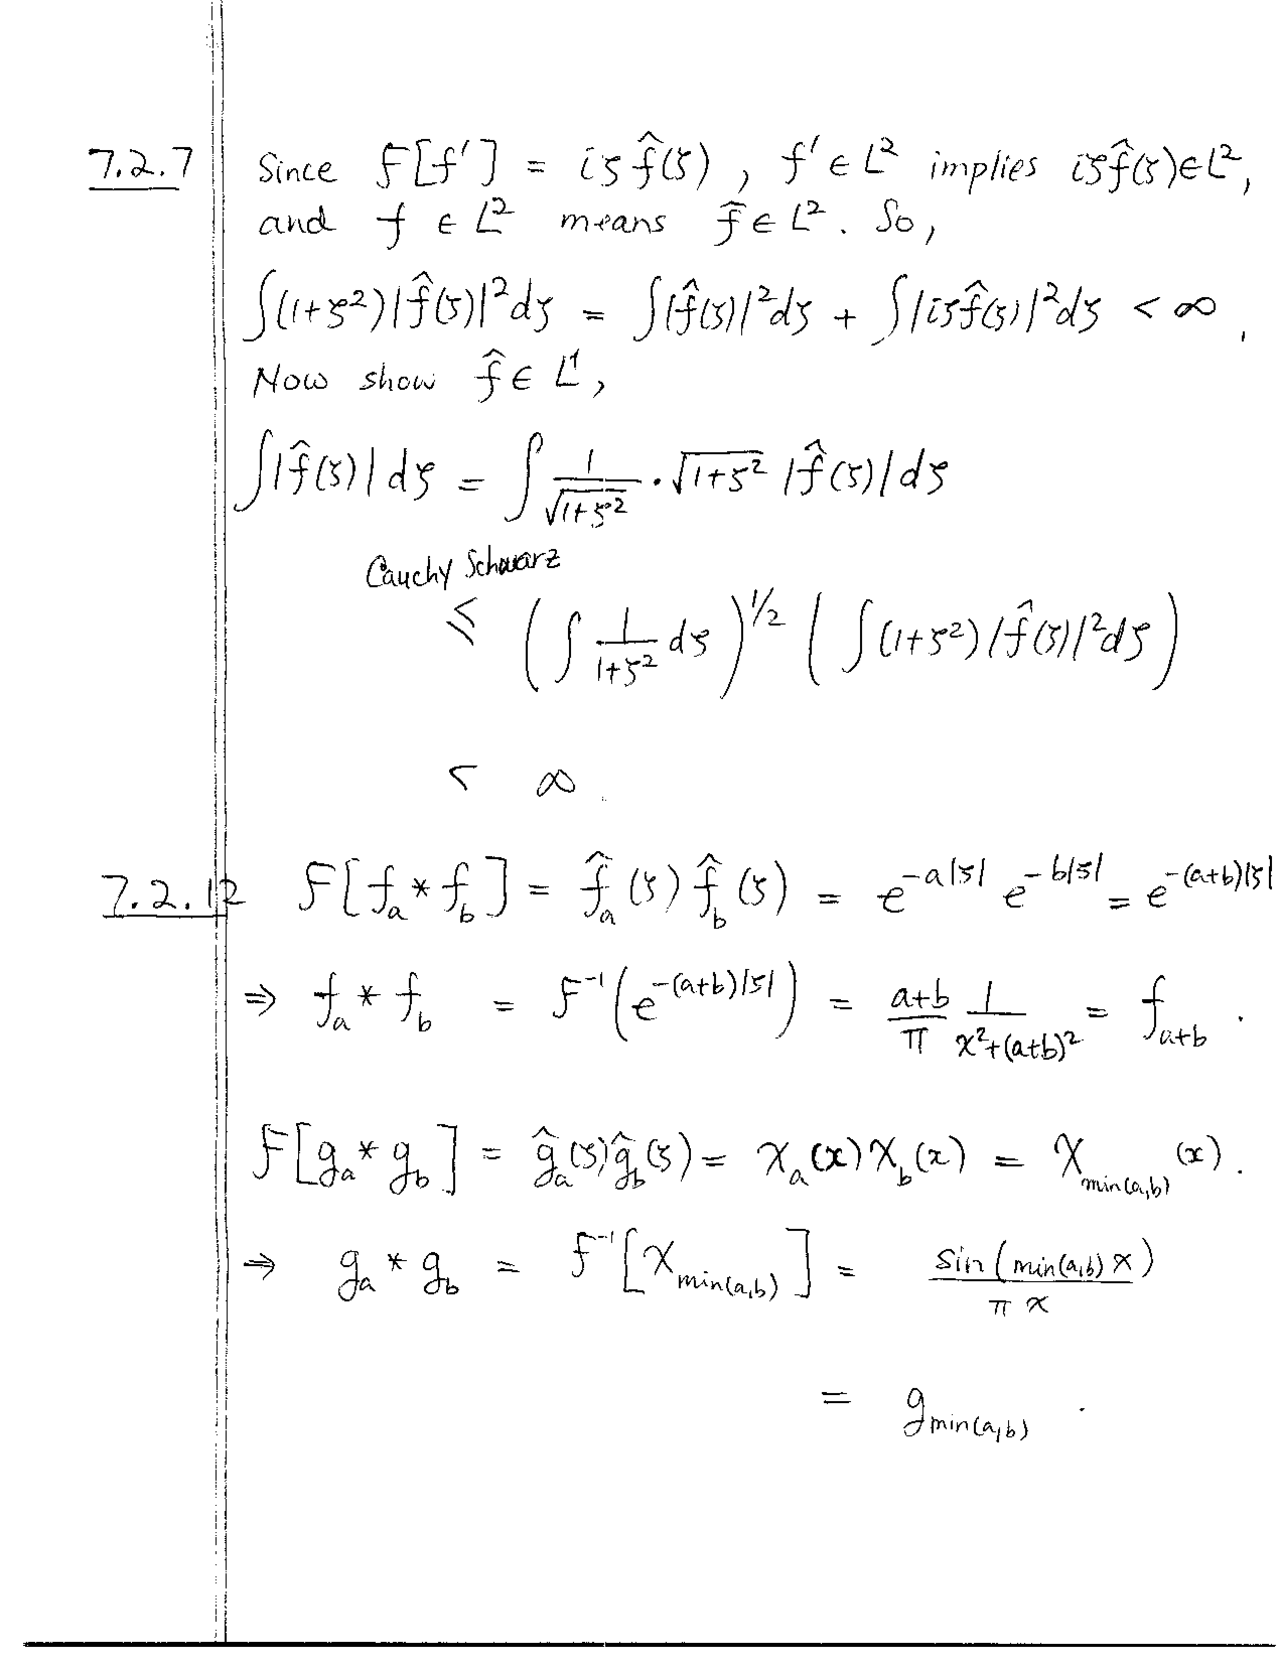 7.2.7 Since F[f'] = iξf̂(ξ), f' ∈ L² implies iξf̂(ξ) ∈ L²,
and f ∈ L² means f̂ ∈ L². So,
∫(1+ξ²)|f̂(ξ)|²dξ = ∫|f̂(ξ)|²dξ + ∫|iξf̂(ξ)|²dξ < ∞.
Now show f̂ ∈ L¹,
∫|f̂(ξ)|dξ = ∫ 1/√(1+ξ²) · √(1+ξ²) |f̂(ξ)|dξ
Cauchy Schwarz
≤ (∫ 1/(1+ξ²) dξ)^{1/2} (∫(1+ξ²)|f̂(ξ)|²dξ)
< ∞.
7.2.12 F[f_a * f_b] = f̂_a(ξ) f̂_b(ξ) = e^{-a|ξ|} e^{-b|ξ|} = e^{-(a+b)|ξ|}
⇒ f_a * f_b = F⁻¹(e^{-(a+b)|ξ|}) = (a+b)/π 1/(x²+(a+b)²) = f_{a+b}.
F[g_a * g_b] = ĝ_a(ξ)ĝ_b(ξ) = χ_a(x)χ_b(x) = χ_{min(a,b)}(x).
⇒ g_a * g_b = F⁻¹[χ_{min(a,b)}] = sin(min(a,b)x)/(πx)
= g_{min(a,b)}.